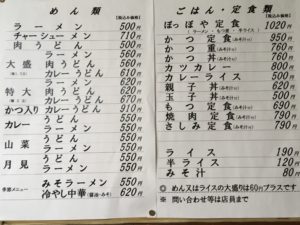 めん類
【税込み価格】
ラーメン 500円
チャーシューメン 710円
肉うどん 500円
ラーメン 560円
大盛 肉うどん 560円
カレーうどん 610円
ラーメン 560円
特大 肉うどん 620円
カレーうどん 670円
かつ入り カレーうどん 810円
カレー うどん 550円
ラーメン 550円
山菜 うどん 550円
ラーメン 550円
月見 うどん 550円
ラーメン 550円
季節メニュー みそラーメン 550円
冷やし中華(醤油・みそ) 620円
ごはん・定食類
【税込み価格】
ぽっぽや定食 1020円
(ラーメン・もつ煮・半ライス)
かつ定食(みそ汁付) 950円
かつ重(みそ汁付) 760円
かつ丼(みそ汁付) 760円
カツカレー 600円
カレーライス 500円
親子丼(みそ汁付) 500円
玉子丼(みそ汁付) 550円
もつ定食(みそ汁付) 690円
焼肉定食(みそ汁付) 790円
さしみ定食(みそ汁付) 790円
ライス 190円
半ライス 120円
みそ汁 80円
◎ めん又はライスの大盛りは60円プラスです
※ 問い合わせ等は店員まで